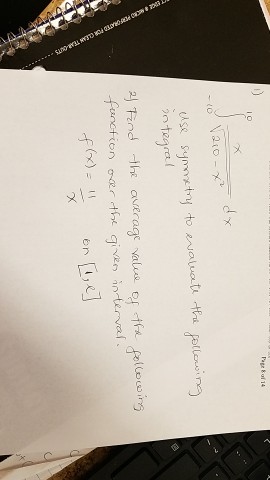 EDGE # MICRO PERFORATED FOR CLEAN TEAR-OUTS
Page 8 of 14
1)
∫_{-10}^{10} x/√(210 - x²) dx
Use symmetry to evaluate the following
integral
2) Find the average value of the following
function over the given interval.
f(x) = 11/x on [1, e]